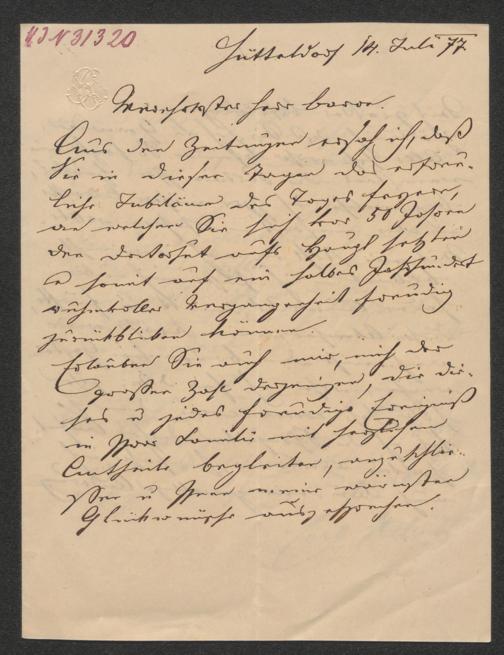 I. N. 31320
Hütteldorf 14. Juli 77
Verehrtester Herr Baron.
Aus den Zeitungen ersah ich, daß
Sie in diesen Tagen das erfreu-
liche Jubiläum des Tages feyern,
an welchem Sie sich vor 50 Jahren
den Doctorhut aufs Haupt setzten
u somit auf ein halbes Jahrhundert
ruhmvoller Vergangenheit freudig
zurückblicken können.
Erlauben Sie auch mir, mich der
großen Zahl derjenigen, die die-
ses u jedes freudige Ereigniß
in Ihrer Familie mit herzlichem
Antheile begleiten, anzuschlie-
ßen u Ihnen meine wärmsten
Glückwünsche auszusprechen.